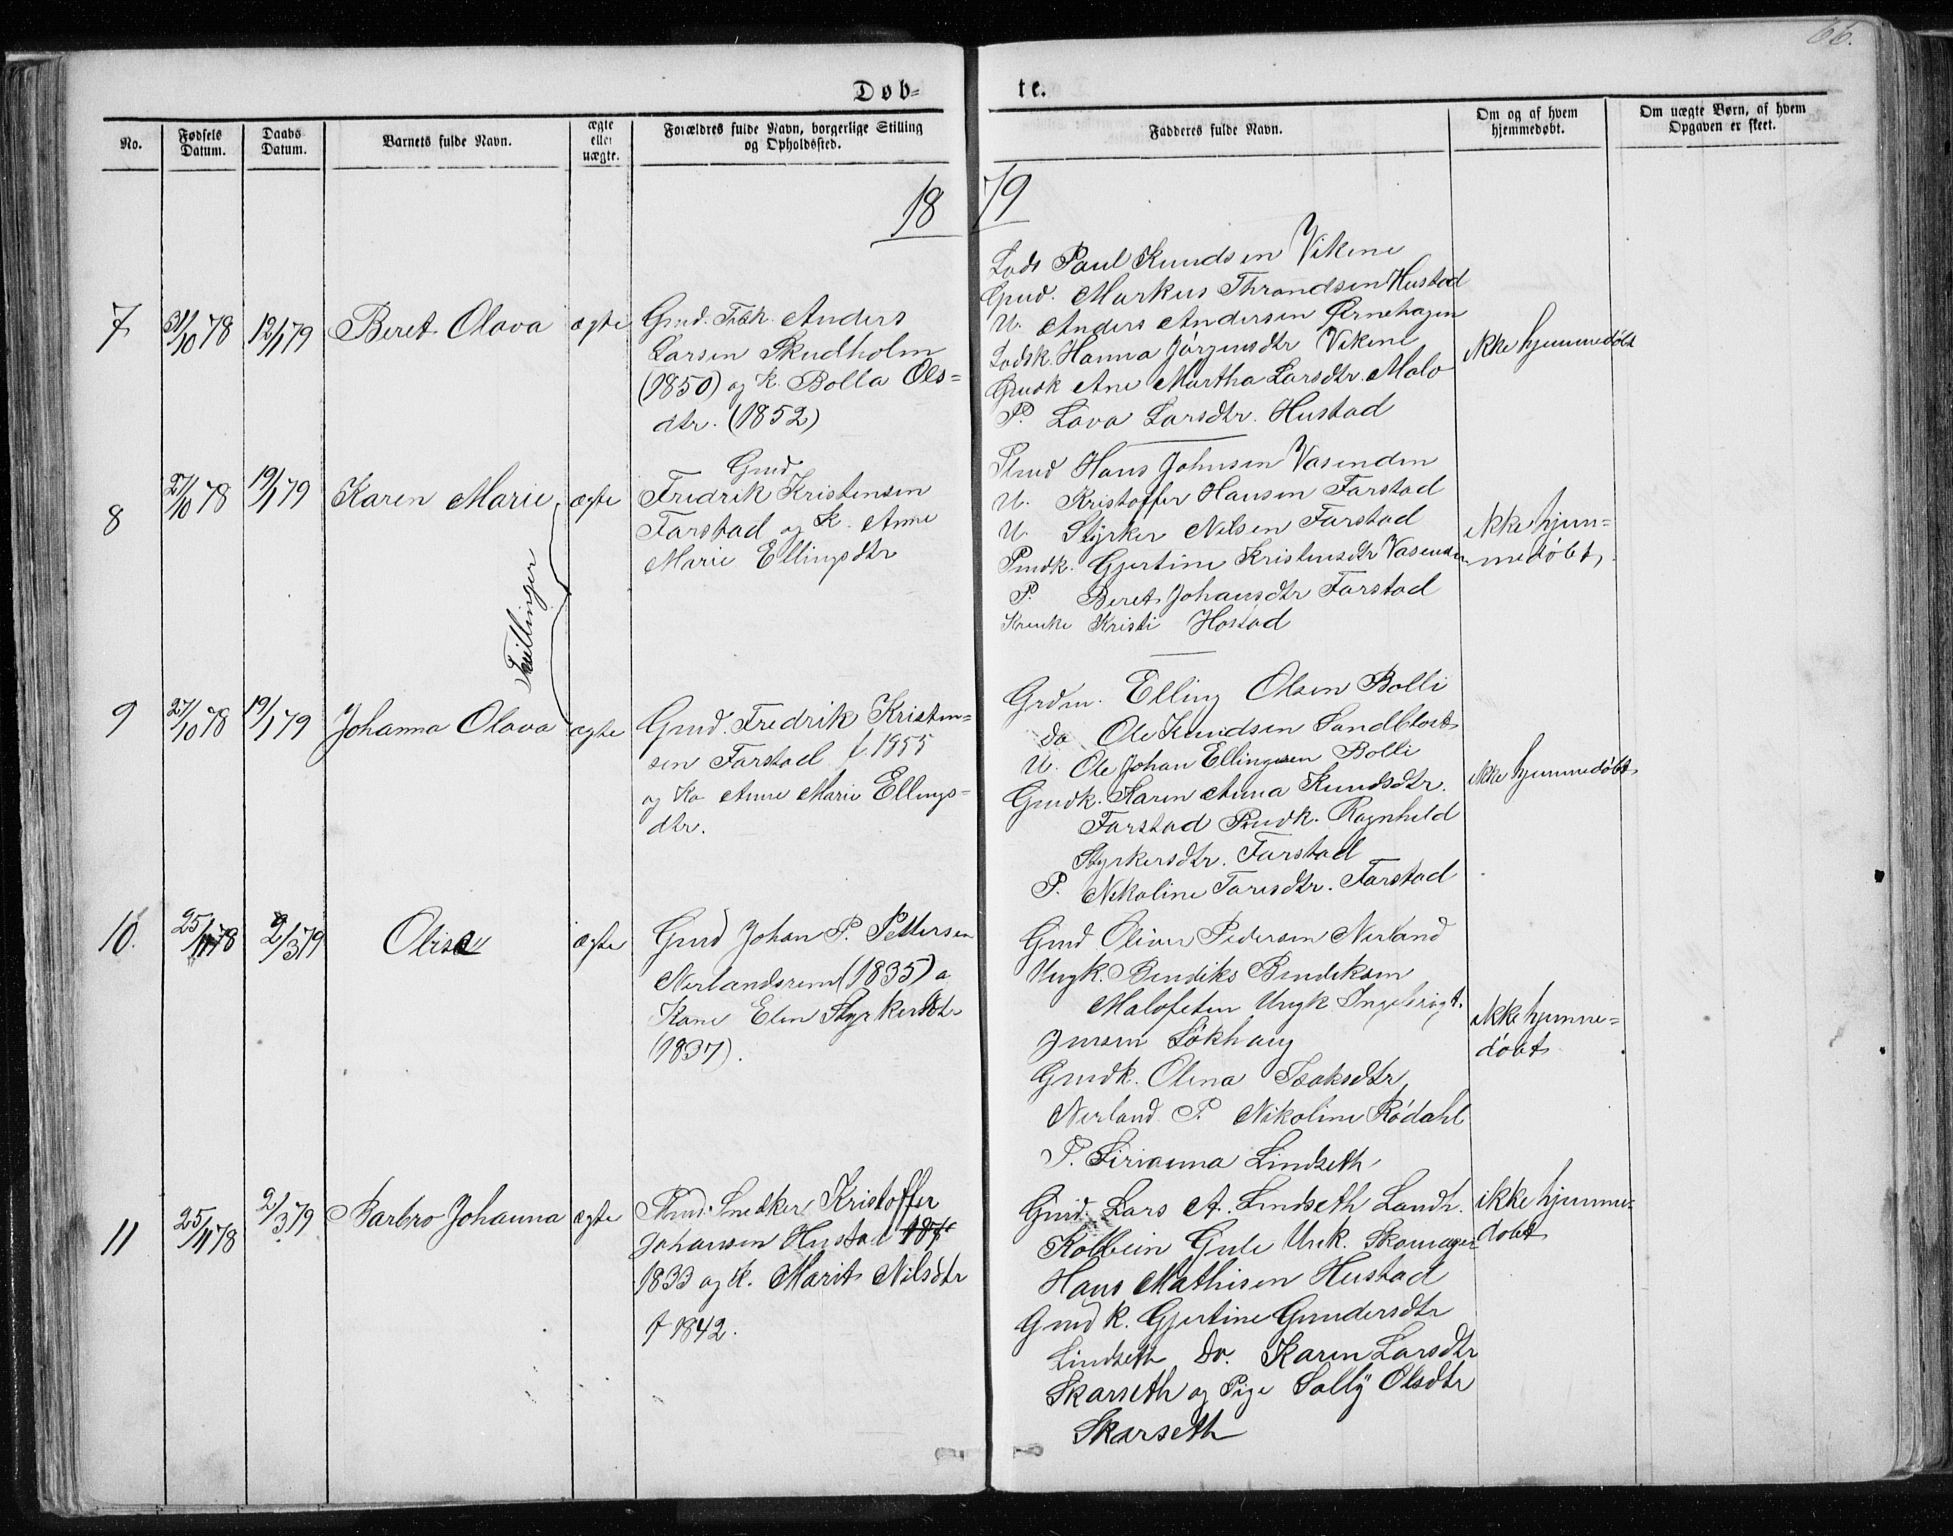 66.
Døb-
te.
No.
Fødsels Datum.
Daabs Datum.
Barnets fulde Navn.
ægte eller uægte.
Forældres fulde Navn, borgerlige Stilling og Opholdssted.
Fadderes fulde Navn.
Om og af hvem hjemmedøbt.
Om uægte Børn, af hvem Opgaven er skeet.
18 79
7
31/10 78
12/1 79
Beret Olava
ægte
Gmd. Fabk. Anders
Larsen Skudholm
(1850) og K. Bolla Ols=
dtr. (1852)
Lods Paul Knudsen Vikene
Gmd. Markus Throndsen Hustad
U. Anders Andersen Ørnehagen
Lodsk. Hanna Jørgensdtr Vikene
Gmdk Ane Martha Larsdtr. Malo
P. Lava Larsdtr. Hustad
ikke hjemmedøbt
8
27/10 78
19/1 79
Karen Marie
ægte
Gmd
Fredrik Kristensen
Farstad og K. Anne
Marie Ellingsdtr
Hans Johnsen Vasenden
U. Kristoffer Hansen Farstad
U. Styrker Nilsen Farstad
Pmdk. Gjertine Kristensdtr Vasenden
P. Beret Johansdtr Farstad
Kristi Hostad
ikke hjem=
medøbt
Tvillinger
9
27/10 78
19/1 79
Johanna Olava
ægte
Gmd. Fredrik Kristen=
sen Farstad f. 1855
og Ko Anne Marie Ellings=
dtr.
Grdm. Elling Olsen Bolli
do Ole Knudsen Sandblost
U. Ole Johan Ellingsen Bolli
Gmdk. Karen Anna Knudsdtr.
Farstad Pmdk. Ragnhild
Styrkersdtr. Farstad
P. Nikoline Toresdtr. Farstad
ikke hjemmedøbt
10.
25/11 78
2/3 79
Olise
ægte
Gmd Johan P. Pettersen
Nerlandsrem (1835) o
Kone Elen Styrkersdtr
(1837).
Gmd Oliver Pedersen Nerland
Ungk. Bendiks Bendiksen
Malofeten Ungk Ingebrigt.
Jensen Søkhaug
Gmdk. Olena Isaksdtr,
Nerland P. Nikoline Rødahl
P. Sirianna Lindseth
ikke hjemme=
døbt
11
25/11 78
2/3 79
Barbro Johanna
ægte
Snedker Kristoffer
Johansen Hustad
1833 og K. Marit Nilsdtr
f 1842.
Gmd. Lars A. Lindseth Landh.
Kolbein Gule Unk. Skomager
Hans Mathisen Hustad
Gmd K. Gjertine Gundersdtr
Lindseth do. Karen Larsdtr
Skarseth og Pige Sally Olsdtr
Skarseth
ikke hjemme-
døbt